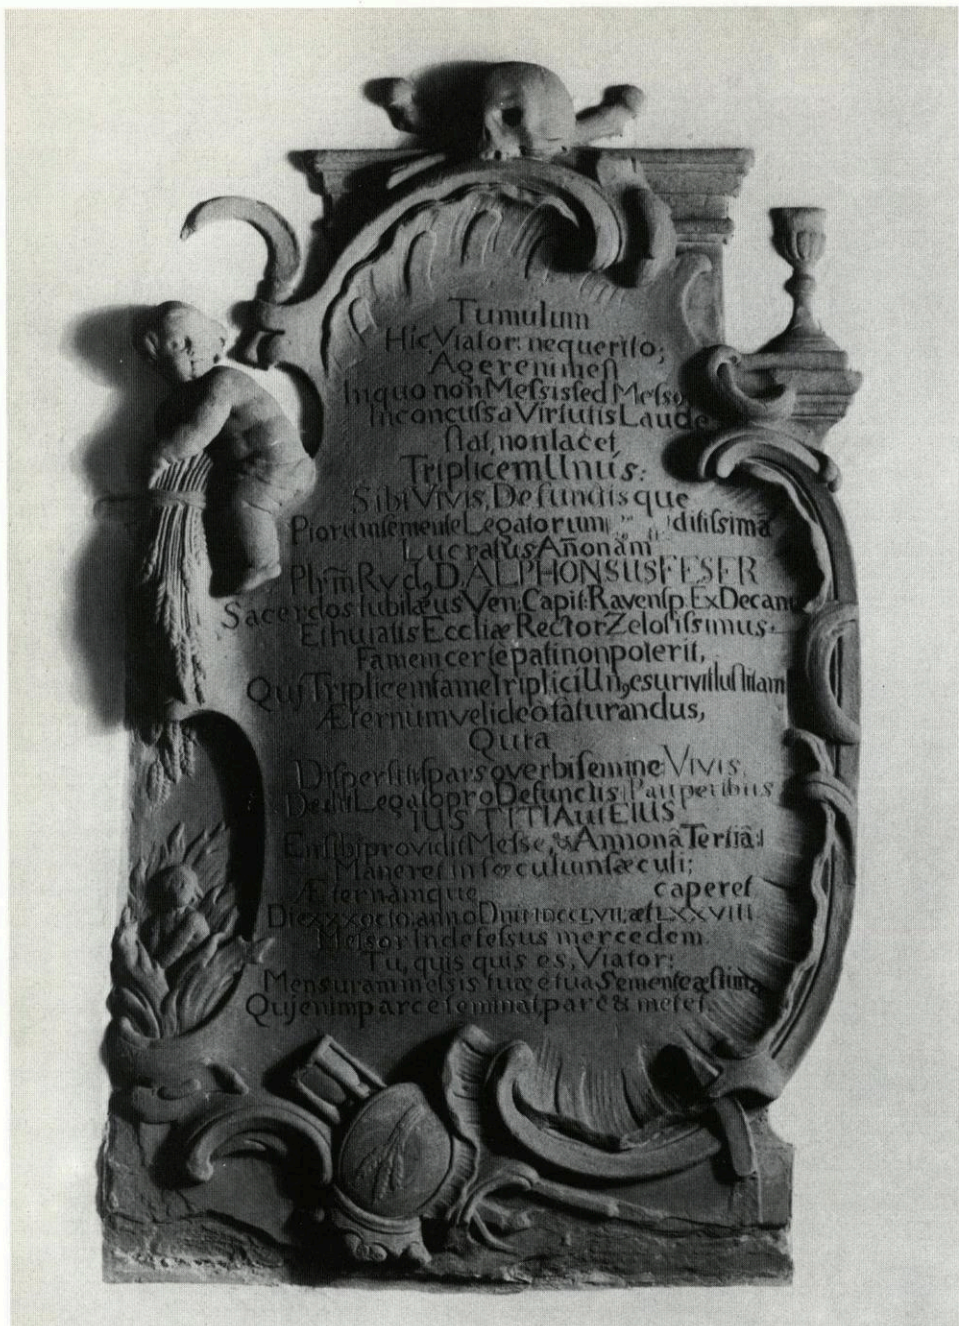 Tumulum
Hic Viator: ne queritto;
Ager enim est
In quo non Messis sed Messo
Inconcussa Virtutis Laude
stat, non Iacet
Triplicem Unus:
Sibi Vivis, Defunctis que
Piorum semente Legatorum ditissimā
Lucratus Añonām
Pl: R̄m Rvd9 D. ALPHONSUS FESER
Sacerdos Iubilæus Ven: Capit: Ravensp. Ex Decanu
Et huiatis Eccliæ Rector Zelosissimus.
Famem certe pati non poterit,
Qui Triplicem fame Triplici Un9 esurivit Iustitiam
Æternum vel ideo saturandus,
Quia
Dispersit pars verbi semine Vivis,
Dedit Legato pro Defunctis Pauperibus
IUSTITIA EIUS
En sibi providit Messe, & Annonā Tertiā:
Maneret in sœculum sæculi;
Æternāmque caperet
Die xxx octo, anno Dni MDCCLVII. æt LXXVIII
Messor Indefessus mercedem.
Tu, quis quis es, Viator:
Mensuram messis tuæ e tua Semente æstima
Qui enim parce seminat, parcè & metet.